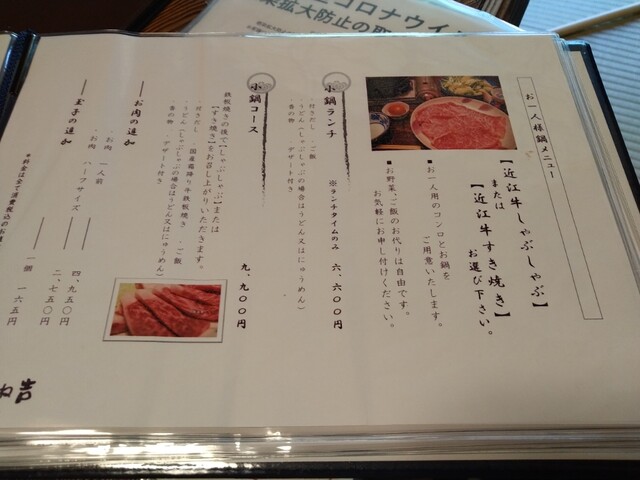 コロナウイ
拡大防止の取
お一人様鍋メニュー
【近江牛しゃぶしゃぶ】
または
【近江牛すき焼き】
お選び下さい。
■お一人用のコンロとお鍋を
ご用意いたします。
■お野菜、ご飯のお代りは自由です。
お気軽にお申し付けください。
小鍋ランチ
※ランチタイムのみ
六、六〇〇円
・付きだし ・ご飯
・うどん(しゃぶしゃぶの場合はうどん又はにゅうめん)
・香の物 ・デザート付き
小鍋コース
九、九〇〇円
鉄板焼きの後で【しゃぶしゃぶ】または
【すき焼き】をお召し上がりいただきます。
・付きだし ・国産霜降り牛鉄板焼き ・ご飯
・うどん(しゃぶしゃぶの場合はうどん又はにゅうめん)
・香の物 ・デザート付き
お肉の追加
・お肉 一人前 四、九五〇円
・お肉 ハーフサイズ 二、七五〇円
玉子の追加
一個 一六五円
※料金は全て消費税込のお値
ね吉